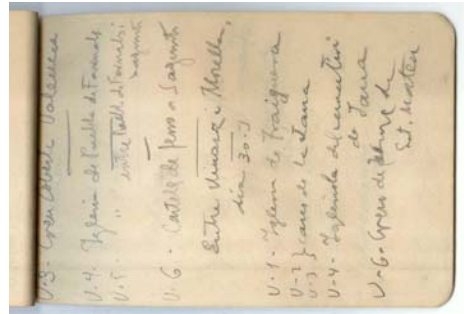 V.3 - Creu Coberta Valencia
V.4. Iglesia de Puebla de Farnals
V.5 - " entre Pobla de Farnals i
Sagunto
V.6. - Castell de Sagunto
Entre Vinaroz i Morella,
dia 30.
V.1 - Iglesia de Traiguera
V.2 } cases de la Jana
V.3
V-4 - Iglesia del cementiri
de Jana
V-6 - Creu de
St. Mateu